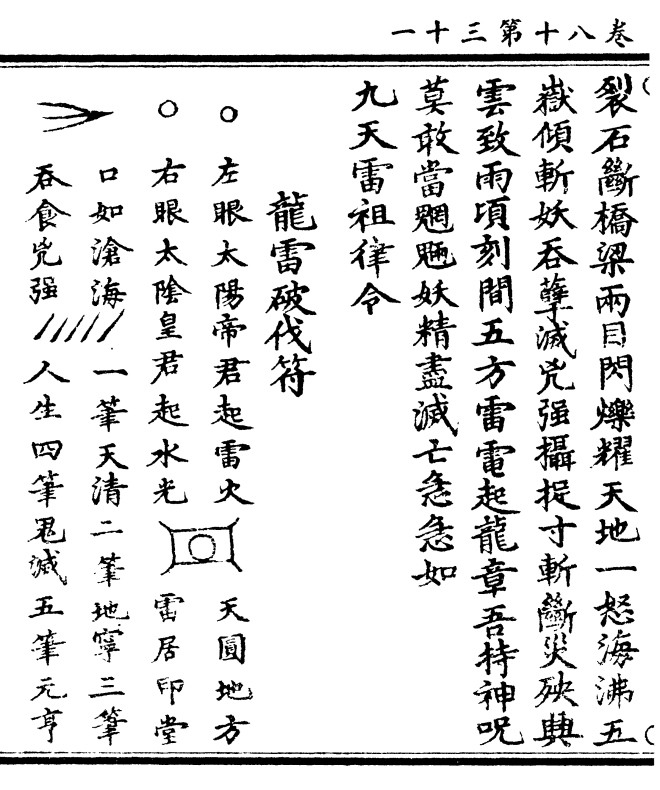 卷八十第三十一
裂石斷橋梁兩目閃爍耀天地一怒海沸五
嶽傾斬妖吞孽滅兇强攝捉寸斬斷災殃興
雲致雨頃刻間五方雷電起龍章吾持神呪
莫敢當魍魎妖精盡滅亡急急如
九天雷祖律令
龍雷破伐符
左眼太陽帝君起雷火
天圓地方
右眼太陰皇君起水光
雷居印堂
口如滄海
吞食兇强
一筆天清二筆地寧三筆
人生四筆鬼滅五筆元亨